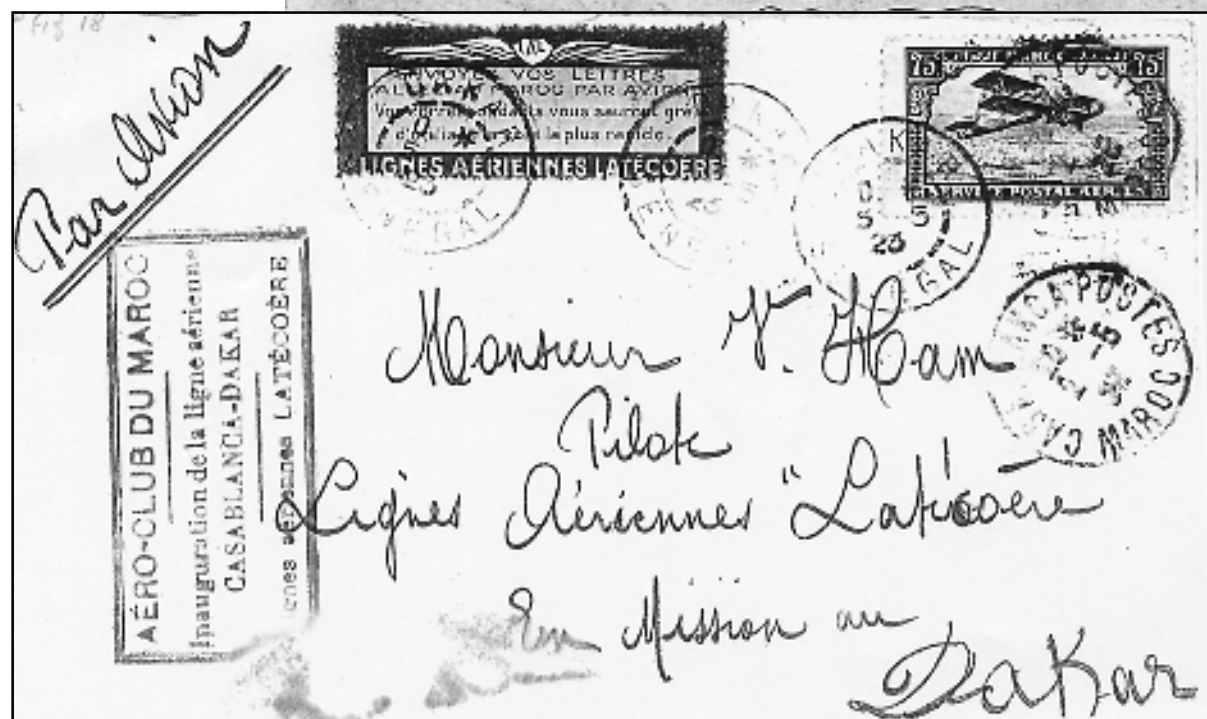 Fig 18
Par Avion
LAL
ENVOYEZ VOS LETTRES
ALLER AU MAROC PAR AVION
Vos correspondants vous sauront gré
d'utiliser le plus rapide.
LIGNES AÉRIENNES LATÉCOÈRE
75c 75c
SERVICE POSTAL AÉRIEN
SÉNÉGAL
23
CASABLANCA POSTES MAROC
AÉRO-CLUB DU MAROC
Inauguration de la ligne aérienne
CASABLANCA-DAKAR
Lignes aériennes LATÉCOÈRE
Monsieur V. Ham
Pilote
Lignes Aériennes "Latécoere
En Mission au
Dakar